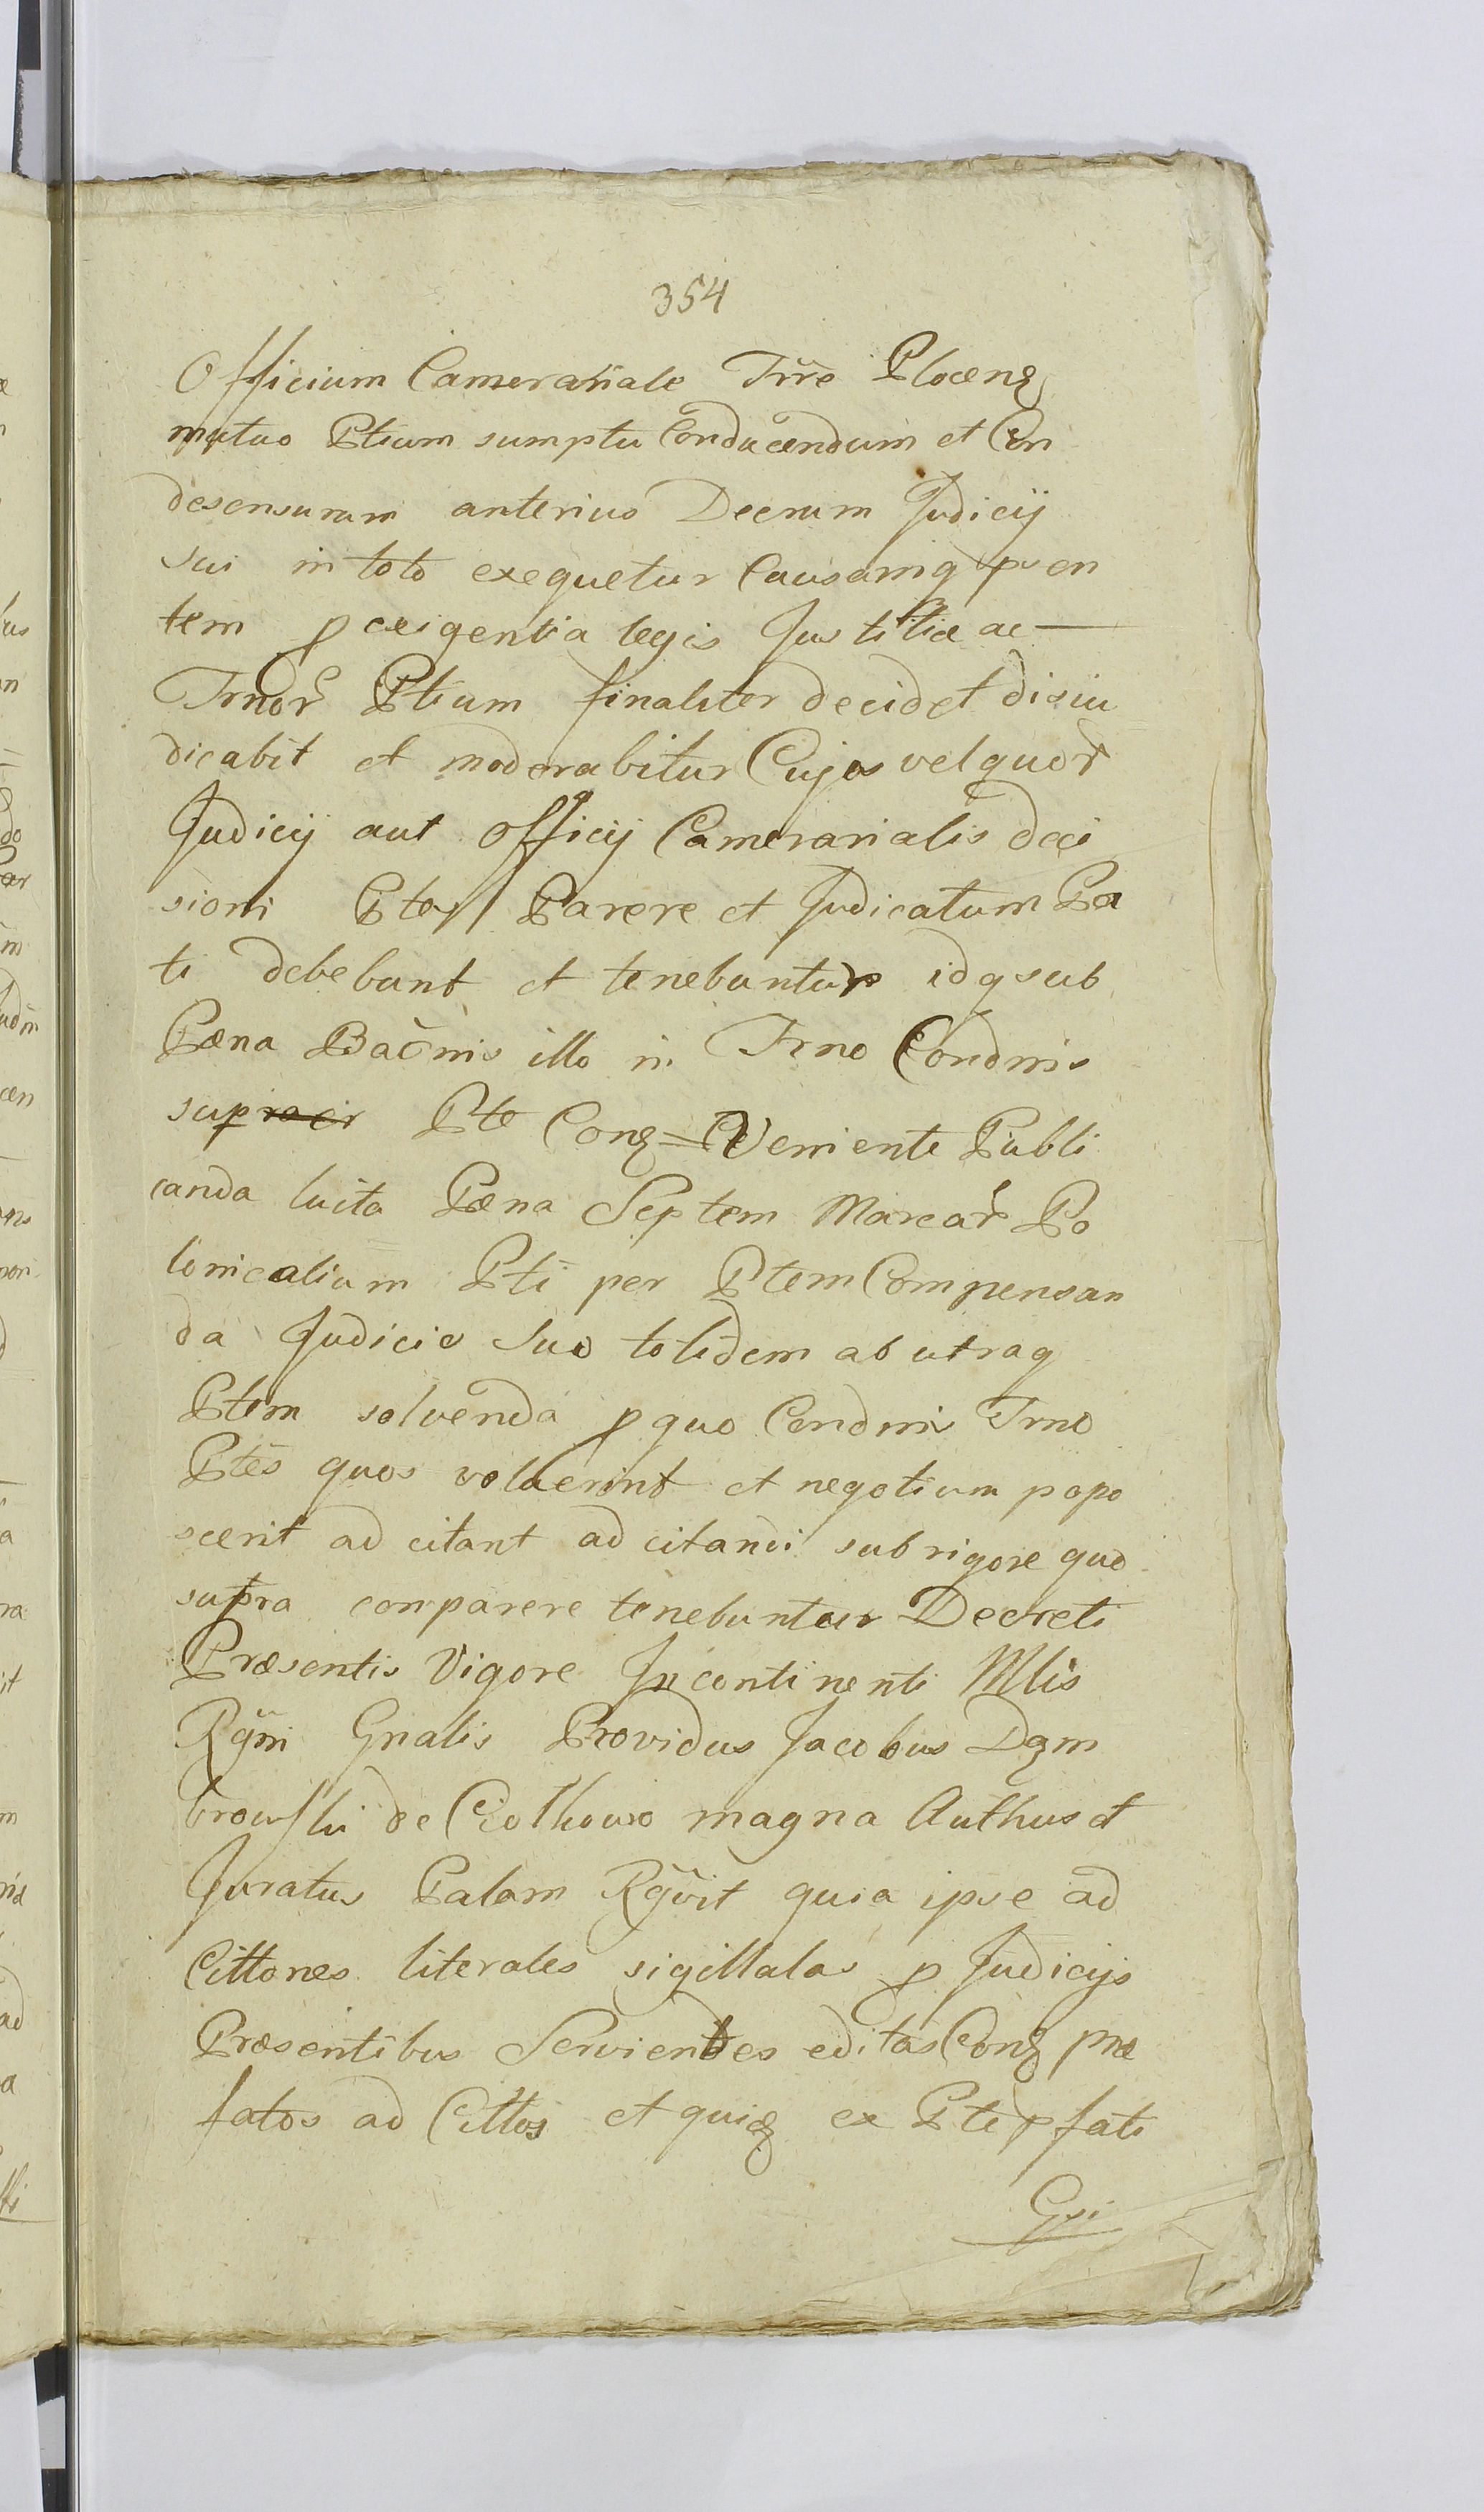 354
Officium Camerariale Trre Plocens
mutuo Ptium sumptu Conducendum et Con
desensurum anterius Decrum Judicij
sui in toto exequetur Causamq psen
tem p exigentia legis Justitiæ ac —
Trnor Ptium finaliter decidet disiu
dicabit et moderabitur Cujos vel quor
Judicij aut officij Camerarialis deci
sioni Ptes Parere et Judicatum Pa
ti debebunt et tenebuntur idq sub
Pæna Bacnis illo in Trno Condnis
Pte Conz Veniente Publi
canda luita Pæna Septem Marcar Po
lonicalium Pti per Ptem Compensan
da Judicio suo totidem ab utraq
Ptem solvenda p quo Condnis Trno
Ptes quos voluerint et negotium popo
scerit ad citant ad citandi sub rigore quo
supra comparere tenebuntur Decreti
Præsentis Vigore Incontinenti Mlis
Rgni Gnalis Providus Jacobus Dąm
browski de Ciothowo magna Authus et
Juratus Palam Rgvit quia ipse ad
Cittones literales sigillatas p Judicijs
Præsentibus Servientes editas Conz præ
fatos ad Cittos et quidz ex Pte pfati
Gsi